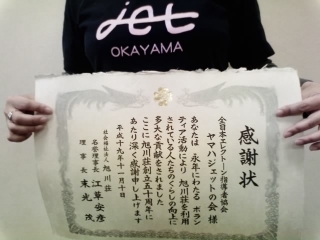 jet
OKAYAMA
感謝状
全日本エレクトーン指導者協会
ヤマハジェットの会 様
あなたは 永年にわたる ボラン
ティア活動により 旭川荘を利用
されている人たちのくらしの向上に
多大な貢献をされました
ここに 旭川荘創立五十周年に
あたり深く感謝申し上げます
平成十九年十一月十日
社会福祉法人 旭川荘
名誉理事長 江草安彦
理事長 末光 茂